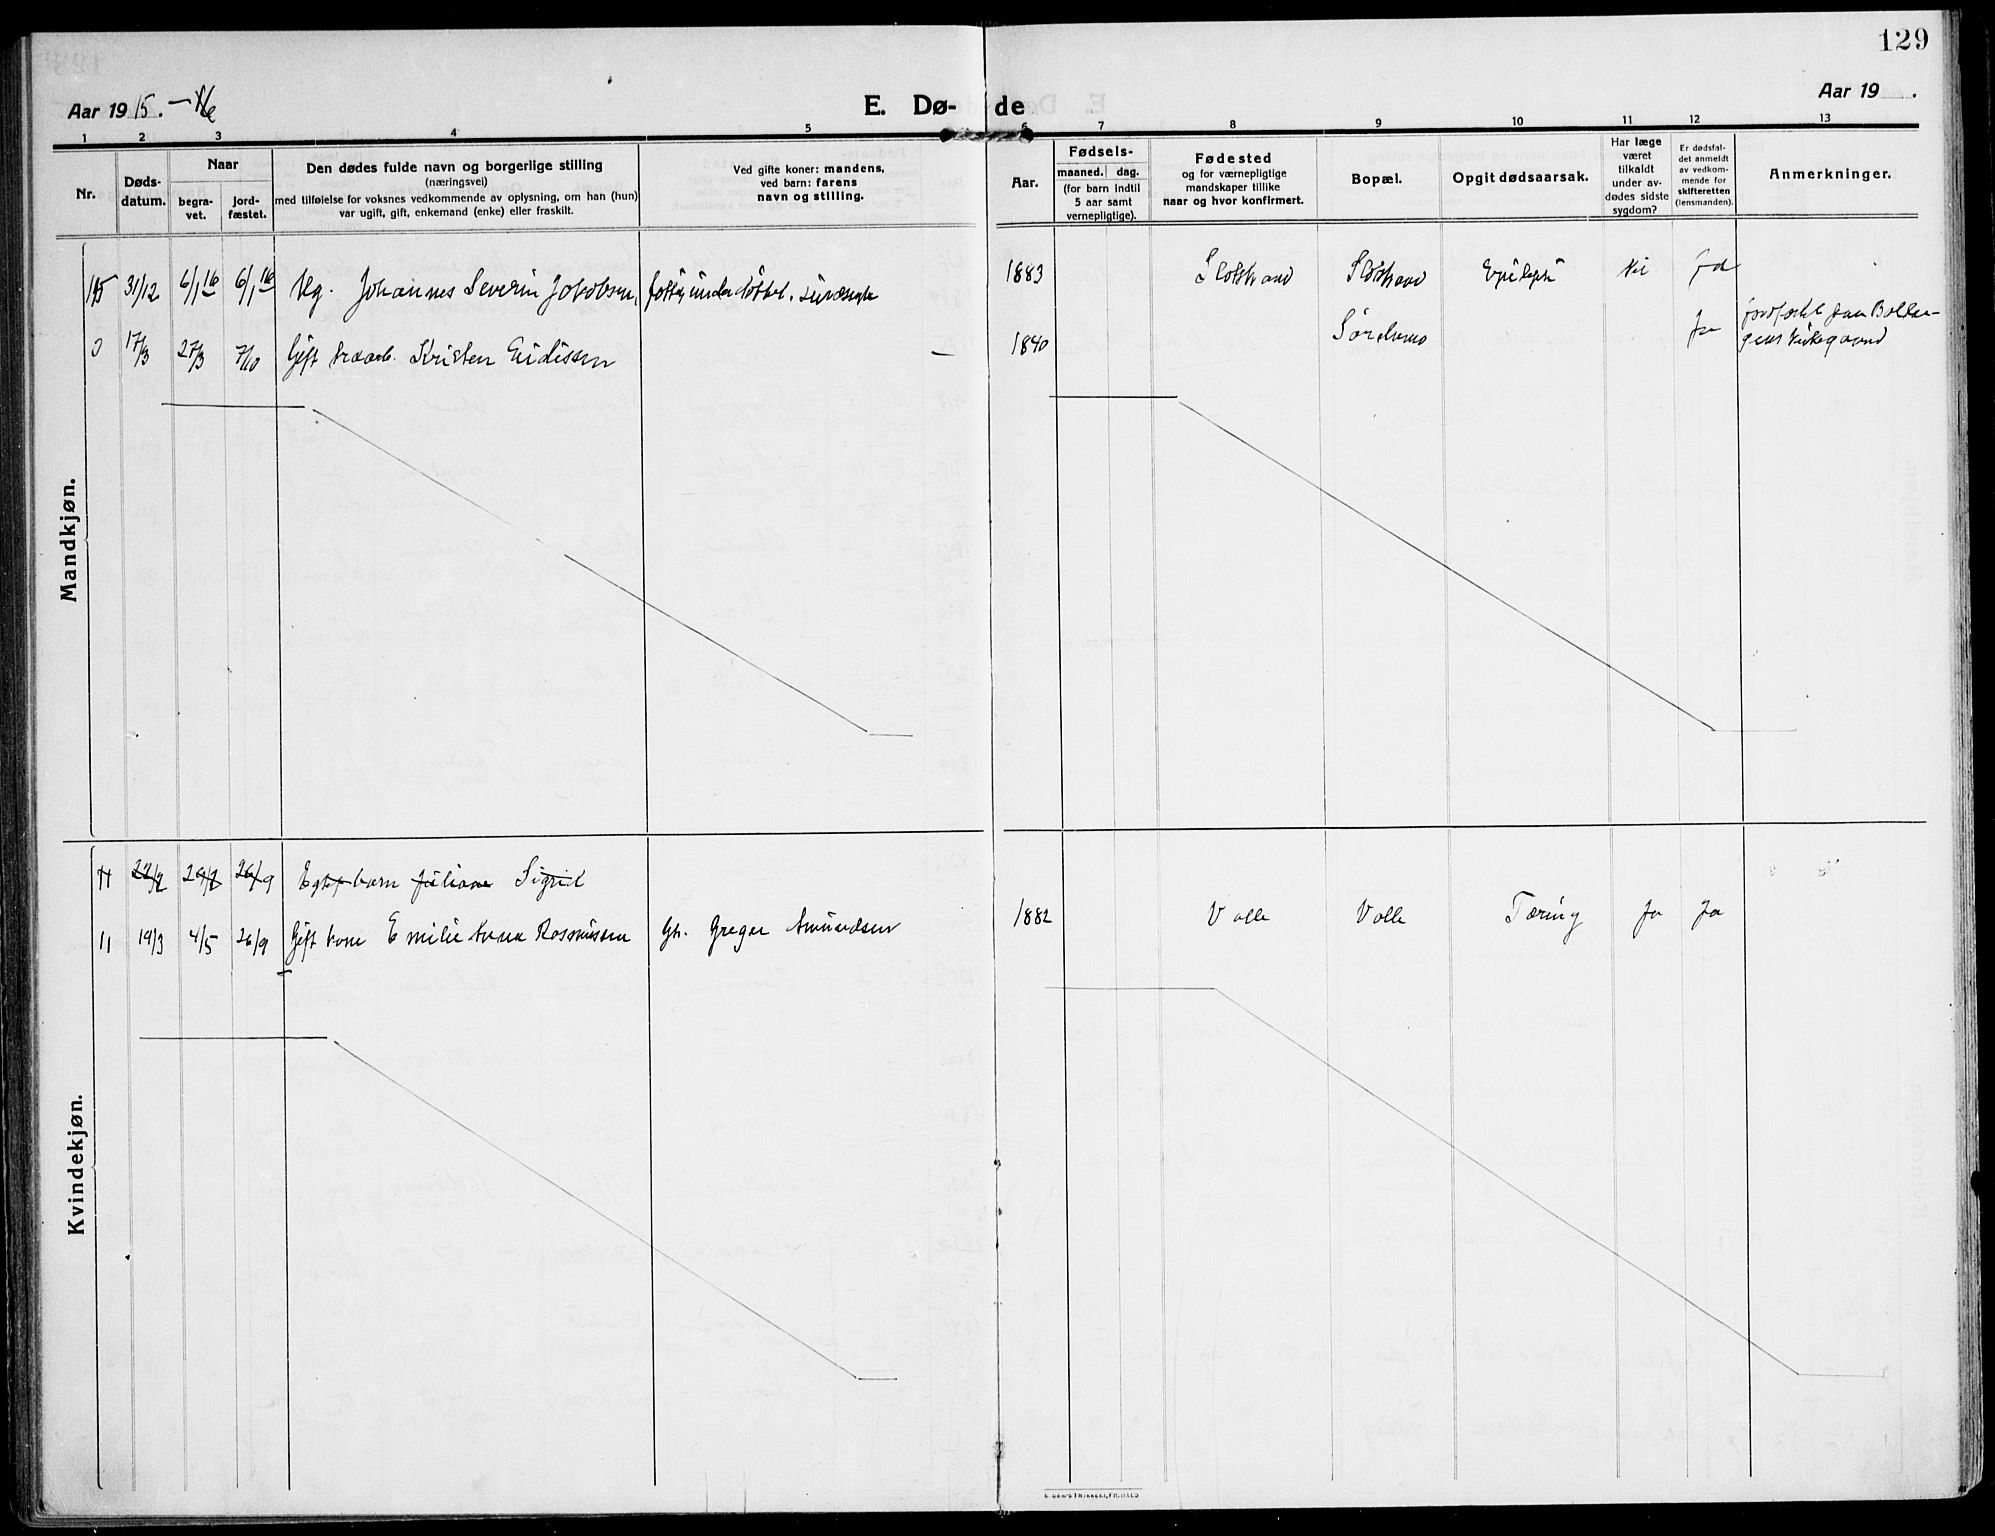 129
Aar 1915. – 16
E. Dø- de
Aar 19 .
1 2 3 4 5 6 7 8 9 10 11 12 13
Nr.
Døds-
datum.
Naar
begra-
vet.
jord-
fæstet.
Den dødes fulde navn og borgerlige stilling
(næringsvei)
med tilføielse for voksnes vedkommende av oplysning, om han (hun)
var ugift, gift, enkemand (enke) eller fraskilt.
Ved gifte koner: mandens,
ved barn: farens
navn og stilling.
Aar.
Fødsels-
maaned. dag.
(for barn indtil
5 aar samt
vernepligtige).
Fødested
og for værnepligtige
mandskaper tillike
naar og hvor konfirmert.
Bopæl.
Opgit dødsaarsak.
Har læge
været
tilkaldt
under av-
dødes sidste
sygdom?
Er dødsfal-
det anmeldt
av vedkom-
mende for
skifteretten
(lensmanden).
Anmerkninger.
Mandkjøn.
15 31/12 6/1 16 6/1 16 Ug. Johannes Severin Jakobsen, 1883 Slotstrand Slotstrand Epilepsi Nei Ja
0 17/3 27/3 7/10 Gift Kristen Eidissen – 1840 Ja jordfæstet paa Ballan-
gens kirkegaard
Kvindekjøn.
11 22/9 26/9 barn Juliane Sigrid
11 19/3 4/5 26/9 Gift kone Emilie Anna Rasmussen Greger Amundsen 1882 Valle Valle Tæring Ja Ja